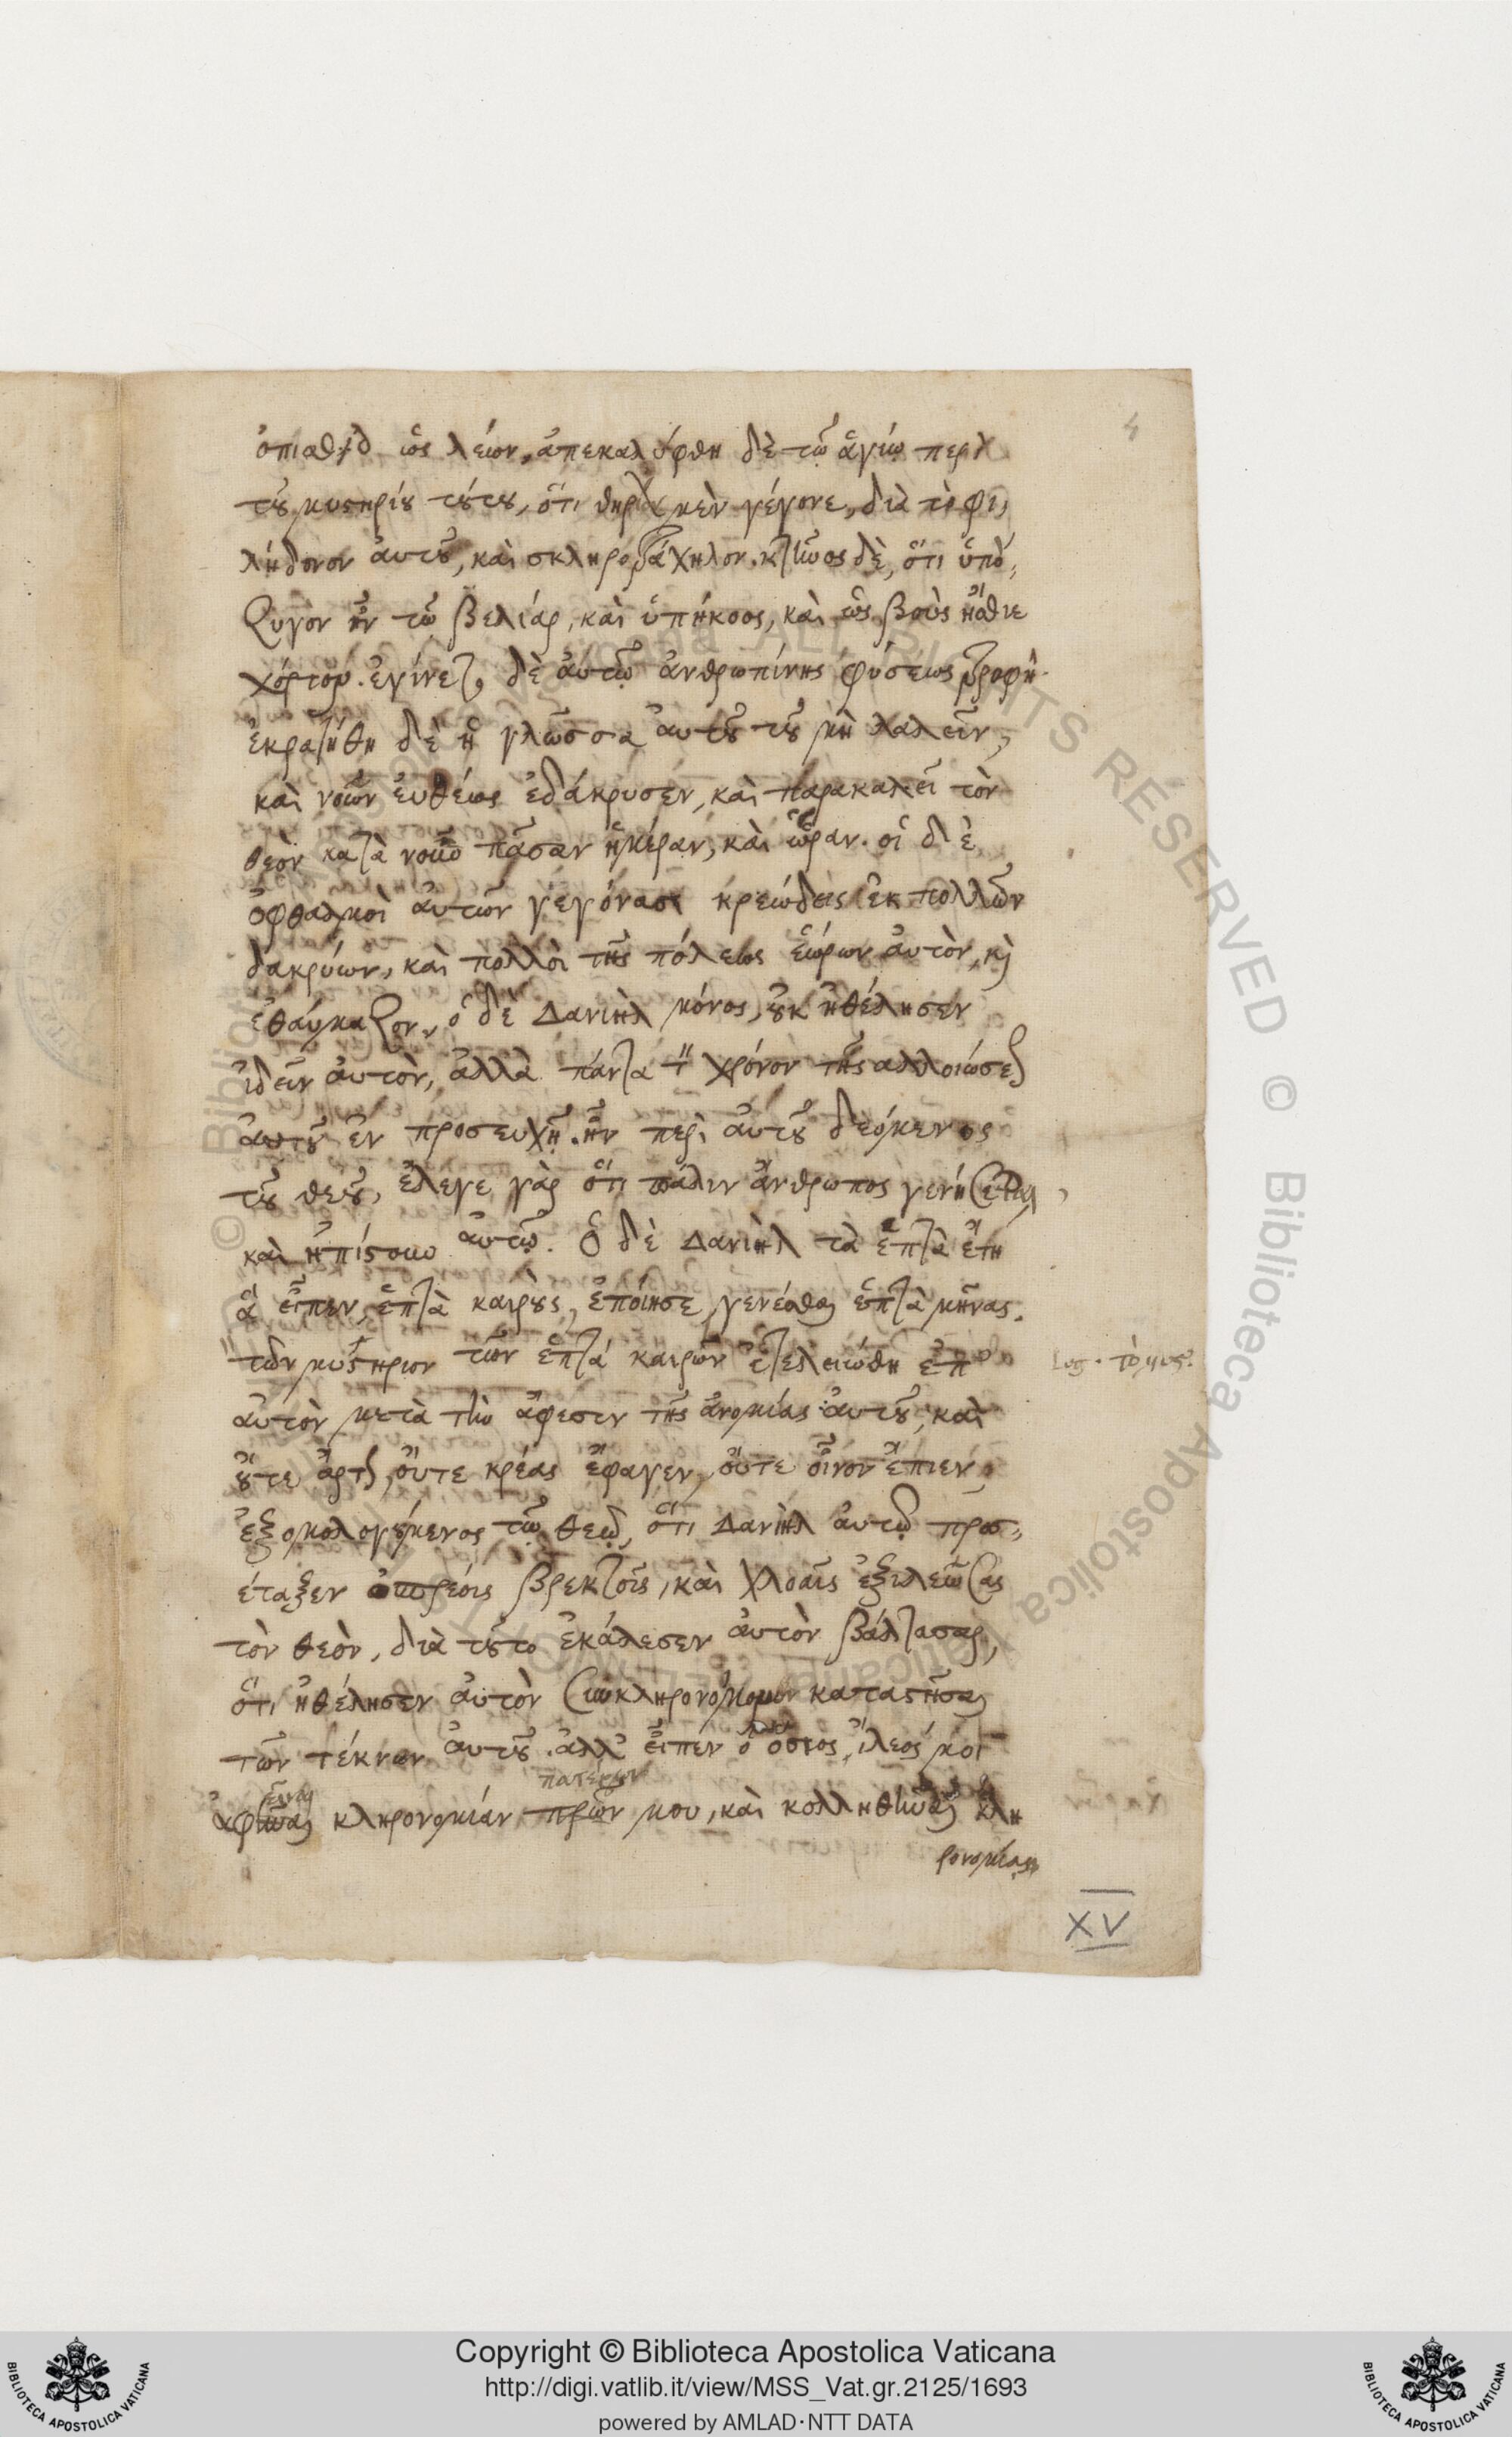 4
ὀπισθίδ ὡς λέων, ἀπεκαλύφθη δὲ τῷ ἁγίῳ περὶ
τοῦ μυστηρίου τούτου, ὅτι θηρίον μὲν γέγονε, διὰ τὸ φι,
λήδονον αὐτοῦ, καὶ σκληροτράχηλον. κτῆνος δὲ, ὅτι ὑπὸ,
ζυγον ἦν τῷ βελίαρ, καὶ ὑπήκοος, καὶ ὡς βοῦς ἤσθιε
χόρτον. ἐγίνετο δὲ αὐτῷ ἀνθρωπίνης φύσεως τροφή.
ἐκρατήθη δὲ ἡ γλῶσσα αὐτοῦ τοῦ μὴ λαλεῖν,
καὶ νοῶν εὐθέως ἐδάκρυσεν, καὶ παρακαλεῖ τὸν
θεὸν κατὰ νοῦν πᾶσαν ἡμέραν, καὶ ὥραν. οἱ δὲ
ὀφθαλμοὶ αὐτῶν γεγόνασι κρεώδεις ἐκ πολλῶν
δακρύων, καὶ πολλοὶ τῆς πόλεως ἑώρων αὐτὸν, κὶ
ἐθαύμαζον, ὁ δὲ Δανιὴλ μόνος, οὐκ ἠθέλησεν
ἰδεῖν αὐτὸν, ἀλλὰ πάντα τὸν χρόνον τῆς ἀλλοιώσεως
αὐτοῦ ἐν προσευχῇ. ἦν περὶ αὐτοῦ δεόμενος
τοῦ θεοῦ, ἔλεγε γὰρ ὅτι πάλιν ἄνθρωπος γενήσεται,
καὶ ἠπίστουν αὐτῷ. Ὁ δὲ Δανιὴλ τὰ ἑπτὰ ἔτη
ἃ εἶπεν, ἑπτὰ καιροὺς, ἐποίησε γενέσθαι ἑπτὰ μῆνας.
τὼν μυστήριον τῶν ἑπτά καιρῶν ἐτελειώθη ἐπ'
Log. τὸ μυς.
αὐτὸν μετὰ τὴν ἄφεσιν τῆς ἀνομίας αὐτοῦ, καὶ
οὔτε ἄρτον, οὔτε κρέας ἔφαγεν, οὔτε οἶνον ἔπιεν,
ἐξομολογούμενος τῷ θεῷ, ὅτι Δανιὴλ αὐτῷ προσ,,
έταξεν ὀσπρέοις βρεκτοῖς, καὶ χλοαῖς ἐξιλεῶσαι
τὸν θεὸν, διὰ τοῦτο ἐκάλεσεν αὐτὸν βάλτασαρ,
ὅτι ἠθέλησεν αὐτὸν συνκληρονόμον καταστῆσαι
τῶν τέκνων αὐτοῦ. ἀλλ' εἶπεν ὁ ὅσιος, ἵλεός μοι
πατέρων
ἀφεῖναι κληρονομίαν πρῶν μου, καὶ κολληθῆναι κλη
ρονομίαις
XV
Copyright © Biblioteca Apostolica Vaticana
http://digi.vatlib.it/view/MSS_Vat.gr.2125/1693
powered by AMLAD·NTT DATA